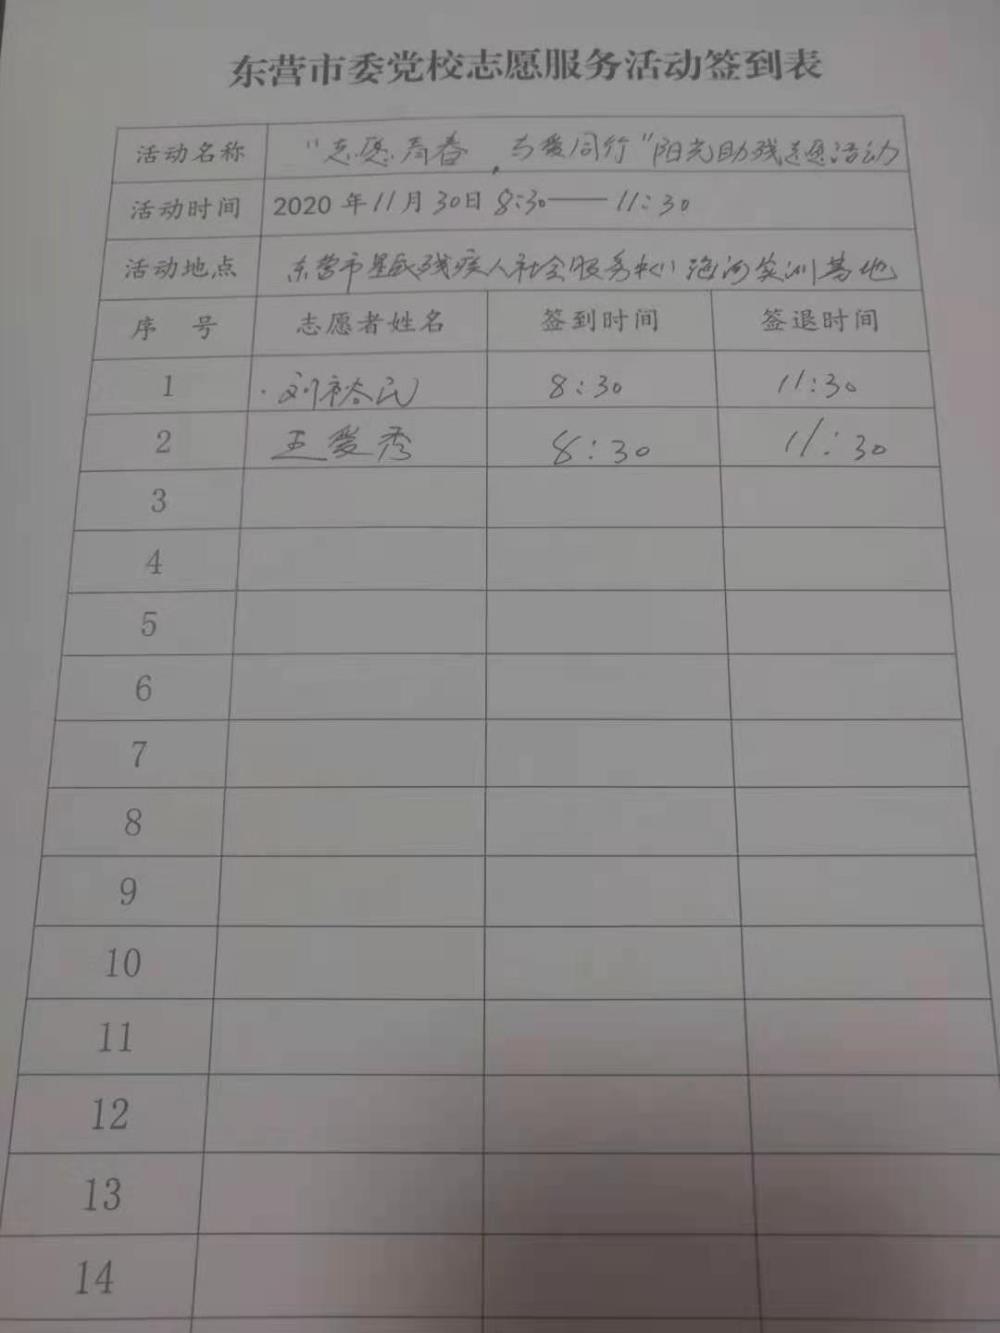 东营市委党校志愿服务活动签到表
活动名称 "志愿青春,与爱同行"阳光助残志愿活动
活动时间 2020年11月30日8:30——11:30
活动地点 东营市星民残疾人社会服务中心 实训基地
序 号 志愿者姓名 签到时间 签退时间
1 刘裕民 8:30 11:30
2 王爱秀 8:30 11:30
3
4
5
6
7
8
9
10
11
12
13
14